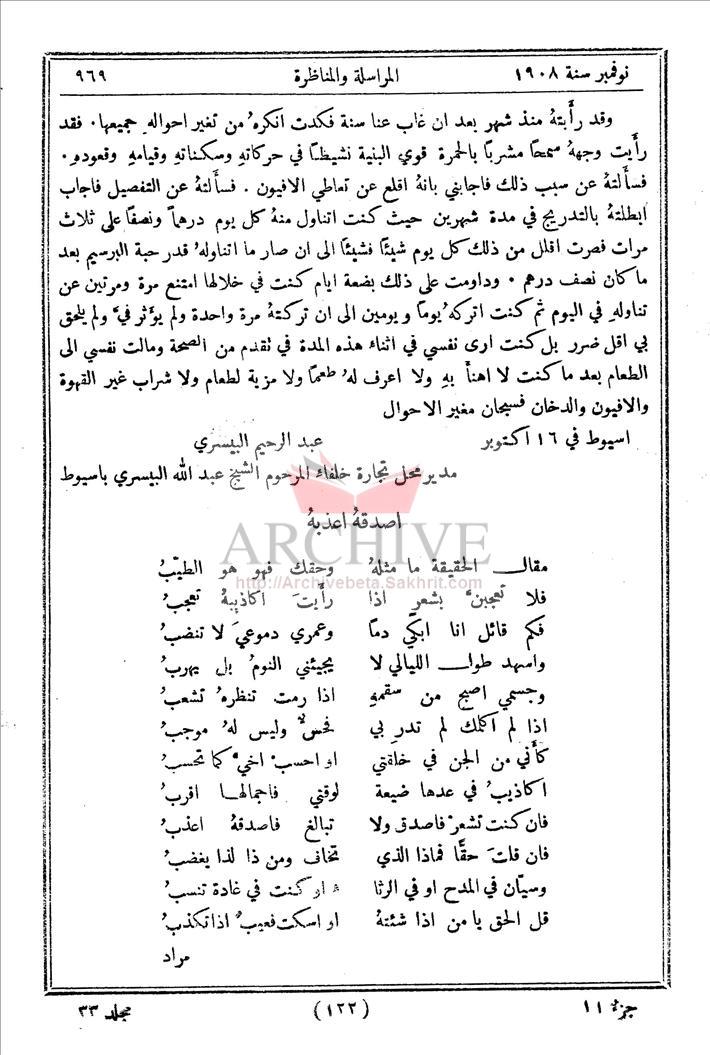 نوفمبر سنة ١٩٠٨ المراسلة والمناظرة ٩٦٩
وقد رأيتهُ منذ شهر بعد ان غاب عنا سنة فكدت انكرهُ من تغير احواله جميعها٠ فقد
رأيت وجههُ سمحًا مشربًا بالحمرة قوي البنية نشيطًا في حركاتهِ وسكناتهِ وقيامهِ وقعودهِ٠
فسألتهُ عن سبب ذلك فاجابني بانهُ اقلع عن تعاطي الافيون ٠ فسألتهُ عن التفصيل فاجاب
ابطلتهُ بالتدريج في مدة شهرين حيث كنت اتناول منهُ كل يوم درهمًا ونصفًا على ثلاث
مرات فصرت اقلل من ذلك كل يوم شيئًا فشيئًا الى ان صار ما اتناولهُ قدر حبة البرسيم بعد
ما كان نصف درهم ٠ وداومت على ذلك بضعة ايام كنت في خلالها امتنع مرة ومرتين عن
تناولهِ في اليوم ثم كنت اتركهُ يومًا ويومين الى ان تركتهُ مرة واحدة ولم يؤثر فيَّ ولم يلحق
بي اقل ضرر بل كنت ارى نفسي في اثناء هذه المدة في تقدم من الصحة ومالت نفسي الى
الطعام بعد ما كنت لا اهنأ بهِ ولا اعرف لهُ طعمًا ولا مزية لطعام ولا شراب غير القهوة
والافيون والدخان فسبحان مغير الاحوال
اسيوط في ١٦ اكتوبر عبد الرحيم البيسري
مدير محل تجارة خلفاء المرحوم الشيخ عبد الله البيسري باسيوط
اصدقهُ اعذبهُ
ARCHIVE
http://Archivebeta.Sakhrit.com
مقال الحقيقة ما مثلهُ وحقك فهو هو الطيّبُ
فلا تعجبنَّ بشعرٍ اذا رأيتَ اكاذيبهُ تعجبُ
فكم قائل انا ابكي دمًا وعمري دموعيَ لا تنضبُ
واسهد طول الليالي لا يجيئني النومُ بل يهربُ
وجسمي اصبح من سقمهِ اذا رمت تنظرهُ تشعبُ
اذا لم اكلمك لم تدرِ بي فحسٌّ وليس لهُ موجبُ
كأني من الجن في خلقتي او احسب اخيَّ كما تحسبُ
اكاذيبُ في عدها ضيعة لوقتي فاجمالها اقربُ
فان كنت تشعر فاصدق ولا تبالغ فاصدقهُ اعذبُ
فان قلتَ حقًّا فماذا الذي تخاف ومن ذا لذا يغضبُ
وسيّان في المدح او في الرثا ء او كنت في غادة تنسبُ
قل الحق يا من اذا شئتهُ او اسكت فعيبٌ اذا تكذبُ
مراد
جزء ١١ (١٢٢) مجلد ٣٣